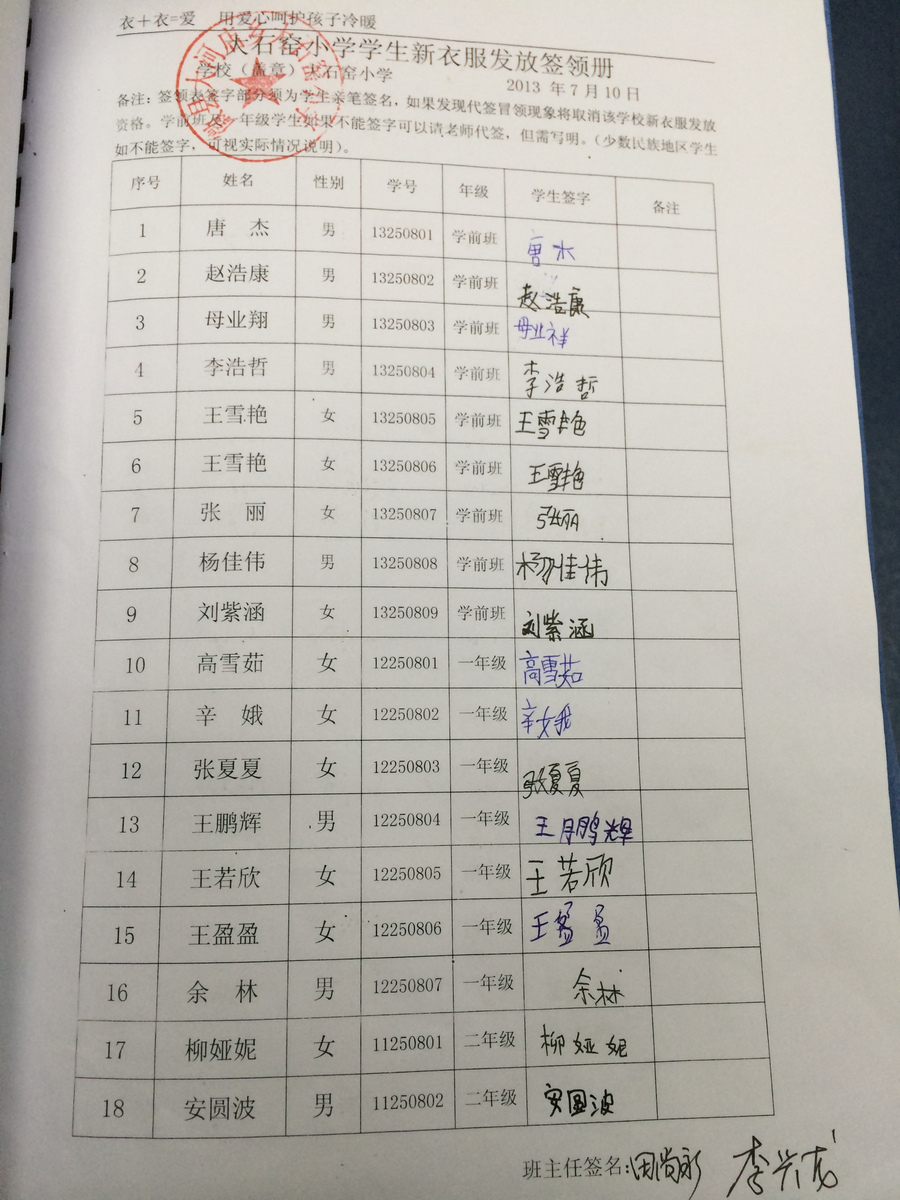 衣+衣=爱 用爱心呵护孩子冷暖
大石窑小学学生新衣服发放签领册
学校（盖章）大石窑小学 2013 年 7 月 10 日
备注：签领表签字部分须为学生亲笔签名，如果发现代签冒领现象将取消该学校新衣服发放
资格。学前班及一年级学生如果不能签字可以请老师代签，但需写明。（少数民族地区学生
如不能签字，可视实际情况说明）。
序号 姓名 性别 学号 年级 学生签字 备注
1 唐 杰 男 13250801 学前班 唐木
2 赵浩康 男 13250802 学前班 赵浩康
3 母业翔 男 13250803 学前班 母业祥
4 李浩哲 男 13250804 学前班 李浩哲
5 王雪艳 女 13250805 学前班 王雪艳
6 王雪艳 女 13250806 学前班 王雪艳
7 张 丽 女 13250807 学前班 张丽
8 杨佳伟 男 13250808 学前班 杨佳伟
9 刘紫涵 女 13250809 学前班 刘紫涵
10 高雪茹 女 12250801 一年级 高雪茹
11 辛 娥 女 12250802 一年级 辛娥
12 张夏夏 女 12250803 一年级 张夏夏
13 王鹏辉 男 12250804 一年级 王鹏辉
14 王若欣 女 12250805 一年级 王若欣
15 王盈盈 女 12250806 一年级 王盈盈
16 余 林 男 12250807 一年级 余林
17 柳娅妮 女 11250801 二年级 柳娅妮
18 安圆波 男 11250802 二年级 安圆波
班主任签名：田尚永 李兴成